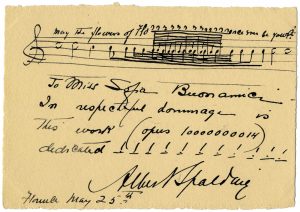 May the flowers of Flo rence ever be yours!
To Miss Sofia Buonamici
In respectful hommage is
This work (opus 10000000014)
dedicated
Albert Spalding
Florence May 25th